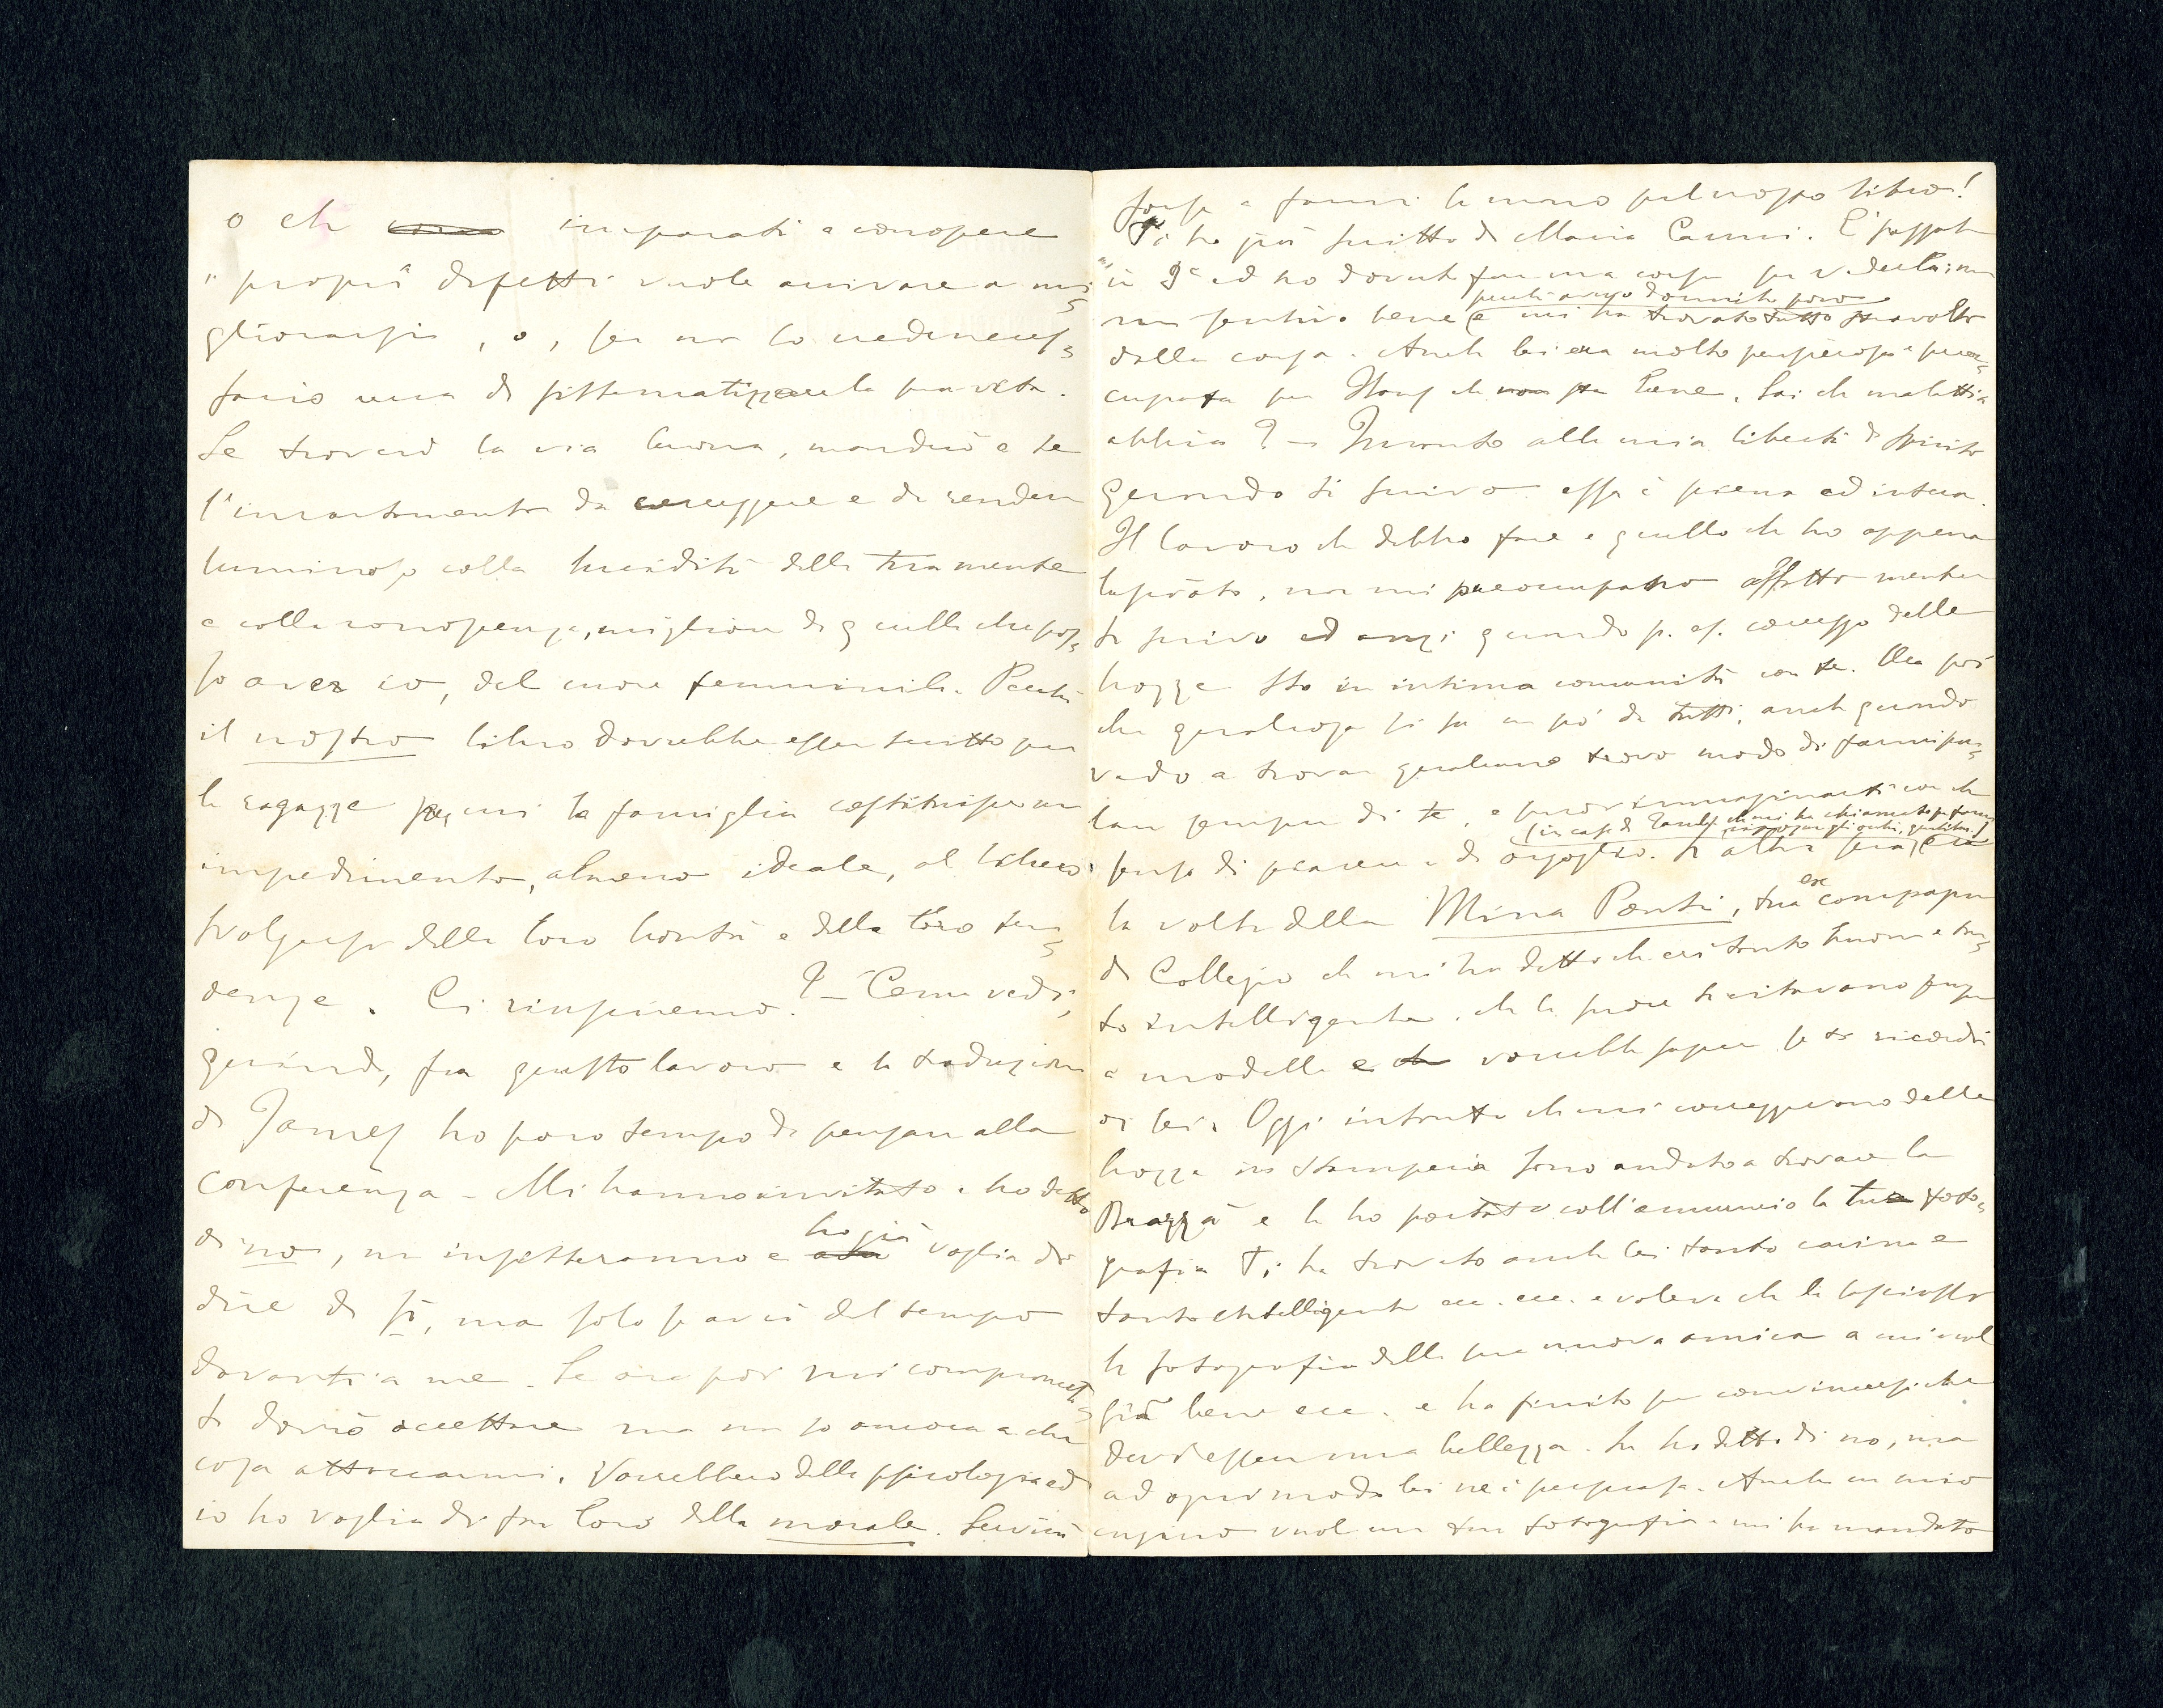 o chi imparati a conoscere
i proprî difetti vuole arrivare a mi=
gliorarsi, o, se non lo crede neces=
sario cerca di sistematizzare la sua vita.
Se troverò la via buona, manderò a te
l'incartamento da correggere e da rendere
luminoso colla lucidità della tua mente
e colla conoscenza, migliore di quella che pos=
so aver io, del cuore femminile. Perchè
il nostro libro dovrebbe esser scritto per
le ragazze per cui la famiglia costituisce un
impedimento, almeno ideale, al libero
svolgersi della loro bontà e delle loro ten=
denze. Ci riusciremo? — Come vedi,
quindi, fra questo lavoro e la traduzione
di James ho poco tempo di pensare alla
conferenza — Mi hanno invitato e ho detto
di no, ma insisteranno e ho già voglia di
dire di sì, ma solo se avrò del tempo
davanti a me. Se ora poi mi comprometto
dovrò accettare ma non so ancora a che
cosa attaccarmi. Vorrebbero della psicologia ed
io ho voglia di far loro della morale. Servirà
forse a farmi la mano pel nostro libro!
Ti ho già scritto di Maria Carmi. È passata
ed ho dovuto fare una corsa per vederla; non
mi sentivo bene (perchè avevo dormito poco) e mi ha trovato tutto stravolto
dalla corsa. Anche lei era molto pensierosa e preoc=
cupata per che non sta bene. Sai che malattia
abbia? — Quanto alla mia libertà di spirito
quando ti scrivo essa è piena ed intera.
Il lavoro che debbo fare e quello che ho appena
lasciato, non mi preoccupano affatto mentre
ti scrivo ed anzi quando p. es. correggo delle
bozze sto in intima comunità con te. Ma poi
che qualcosa si sa un po' da tutti, anche quando
vado a trovar qualcuno trovo modo di farmi par=
lare sempre di te, e puoi immaginarti con che
senso di piacere e di orgoglio. L'altra sera, era
la volta della Mina Ponti, tua ex compagna
di Collegio che mi ha detto che eri tanto buona e tan=
to intelligente, che le suore ti citavano sempre
a modello e vorrebbe sapere se ti ricordi
di lei. Oggi intanto che mi correggevano delle
bozze in stamperia sono andato a trovare la
Brazzà e le ho portato coll'annuncio la tua foto=
grafia. Ti ha trovato anche lei tanto carina e
tanto intelligente ecc. ecc. e voleva che le lasciassi
la fotografia della sua nuova amica a cui vuol
già bene ecc. e ha finito per convincersi che
devi essere una bellezza. Le ho detto di no, ma
ad ogni modo lei ne è persuasa. Anche un mio
cugino vuol una tua fotografia e mi ha mandato